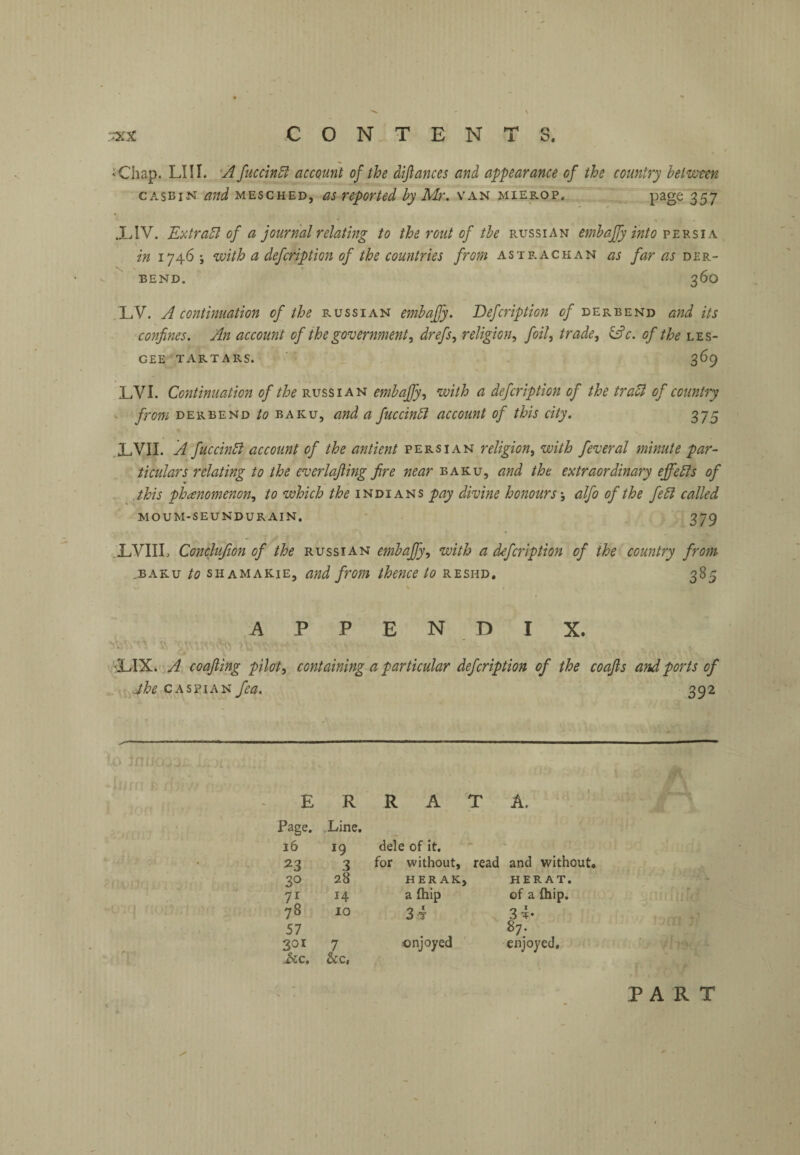 xx CONTENTS.
Chap. LIII. A ſuccinct account of the diſtances and appearance of the country between
CASBIN and MESCHED, as reported by Mr. VAN MIEROP. page 357
LIV. Extract of a journal relating to the rout of the RUSSIAN embaſſy into PERSIA
in 1746; with a deſcription of the countries from ASTRACHAN as far as DER-
BEND. 360
LV. A continuation of the RUSSIAN embaſſy. Deſcription of DERBEND and its
confines. An account of the government, dreſs, religion, ſoil, trade, &c. of the LES-
GEE TARTARS. 369
LVI. Continuation of the RUSSIAN embaſſy, with a deſcription of the tract of country
from DERBEND to BAKU, and a ſuccinct account of this city. 375
LVII. A ſuccinct account of the antient PERSIAN religion, with ſeveral minute par-
ticulars relating to the everlaſting fire near BAKU, and the extraordinary effects of
this phænomenon, to which the INDIANS pay divine honours; alſo of the ſect called
MOUM-SEUNDURAIN. 379
LVIII. Concluſion of the RUSSIAN embaſſy, with a deſcription of the country from
BAKU to SHAMAKIE, and from thence to RESHD. 385
APPENDIX.
LIX. A coaſting pilot, containing a particular deſcription of the coaſts and ports of
the CASPIAN ſea. 392
ERRATA.
Page. Line.
16 19 dele of it.
23 3 for without, read and without.
30 28 HERAK, HERAT.
71 14 a ſhip of a ſhip.
78 10 3 3/4·
57 87.
301 7 onjoyed enjoyed.
&c. &c.
PART